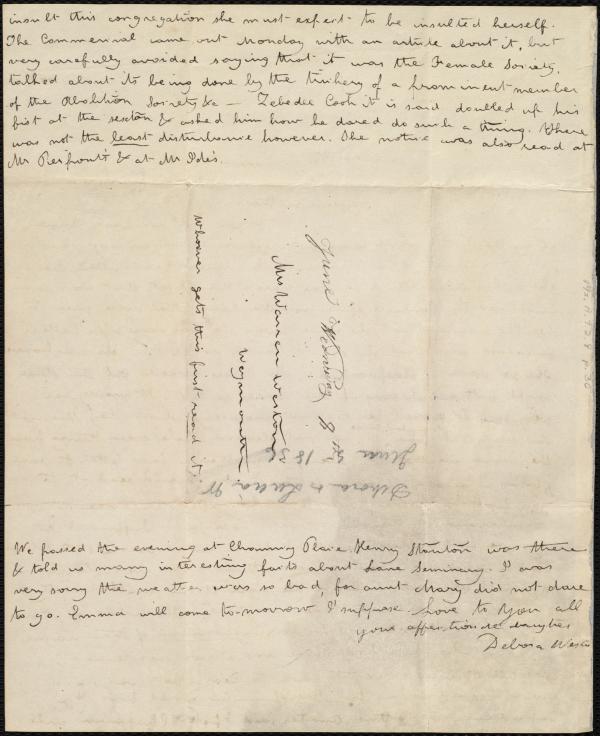 insult this congregation she must expect to be insulted herself.
The Commercial came out Monday with an article about it, but
very carefully avoided saying that it was the Female Society,
talked about its being done by the trickery of a prominent member
of the Abolition Society &c — Zebedee Cook it is said doubled up his
fist at the sexton & asked him how he dared do such a thing. There
was not the least disturbance however. The notice was also read at
Mr & at Mr Ide's.
Whoever gets this first read it.
Mrs Warren Weston
Weymouth
June Wednesday 8th
June 5 1836
Debora & Lucia W
We passed the evening at Chauncy Place. Henry Stanton was there
& told us many interesting facts about Lane Seminary. I was
very sorry the weather was so bad, for aunt Mary did not dare
to go. Emma will come to-morrow I suppose. Love to you all
your affectionate daughter
Debora Weston